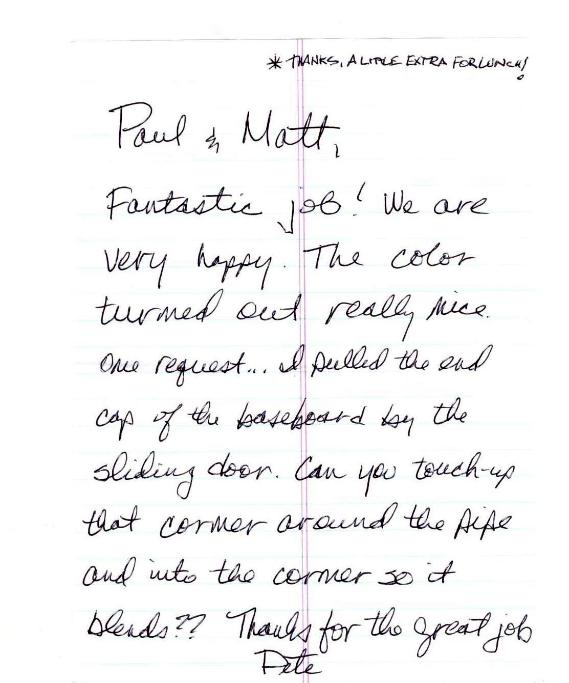 * THANKS, A LITTLE EXTRA FOR LUNCH!
Paul & Matt,
Fantastic job! We are
very happy. The color
turned out really nice.
One request... I pulled the end
cap of the baseboard by the
sliding door. Can you touch-up
that corner around the pipe
and into the corner so it
blends?? Thanks for the great job
Pete